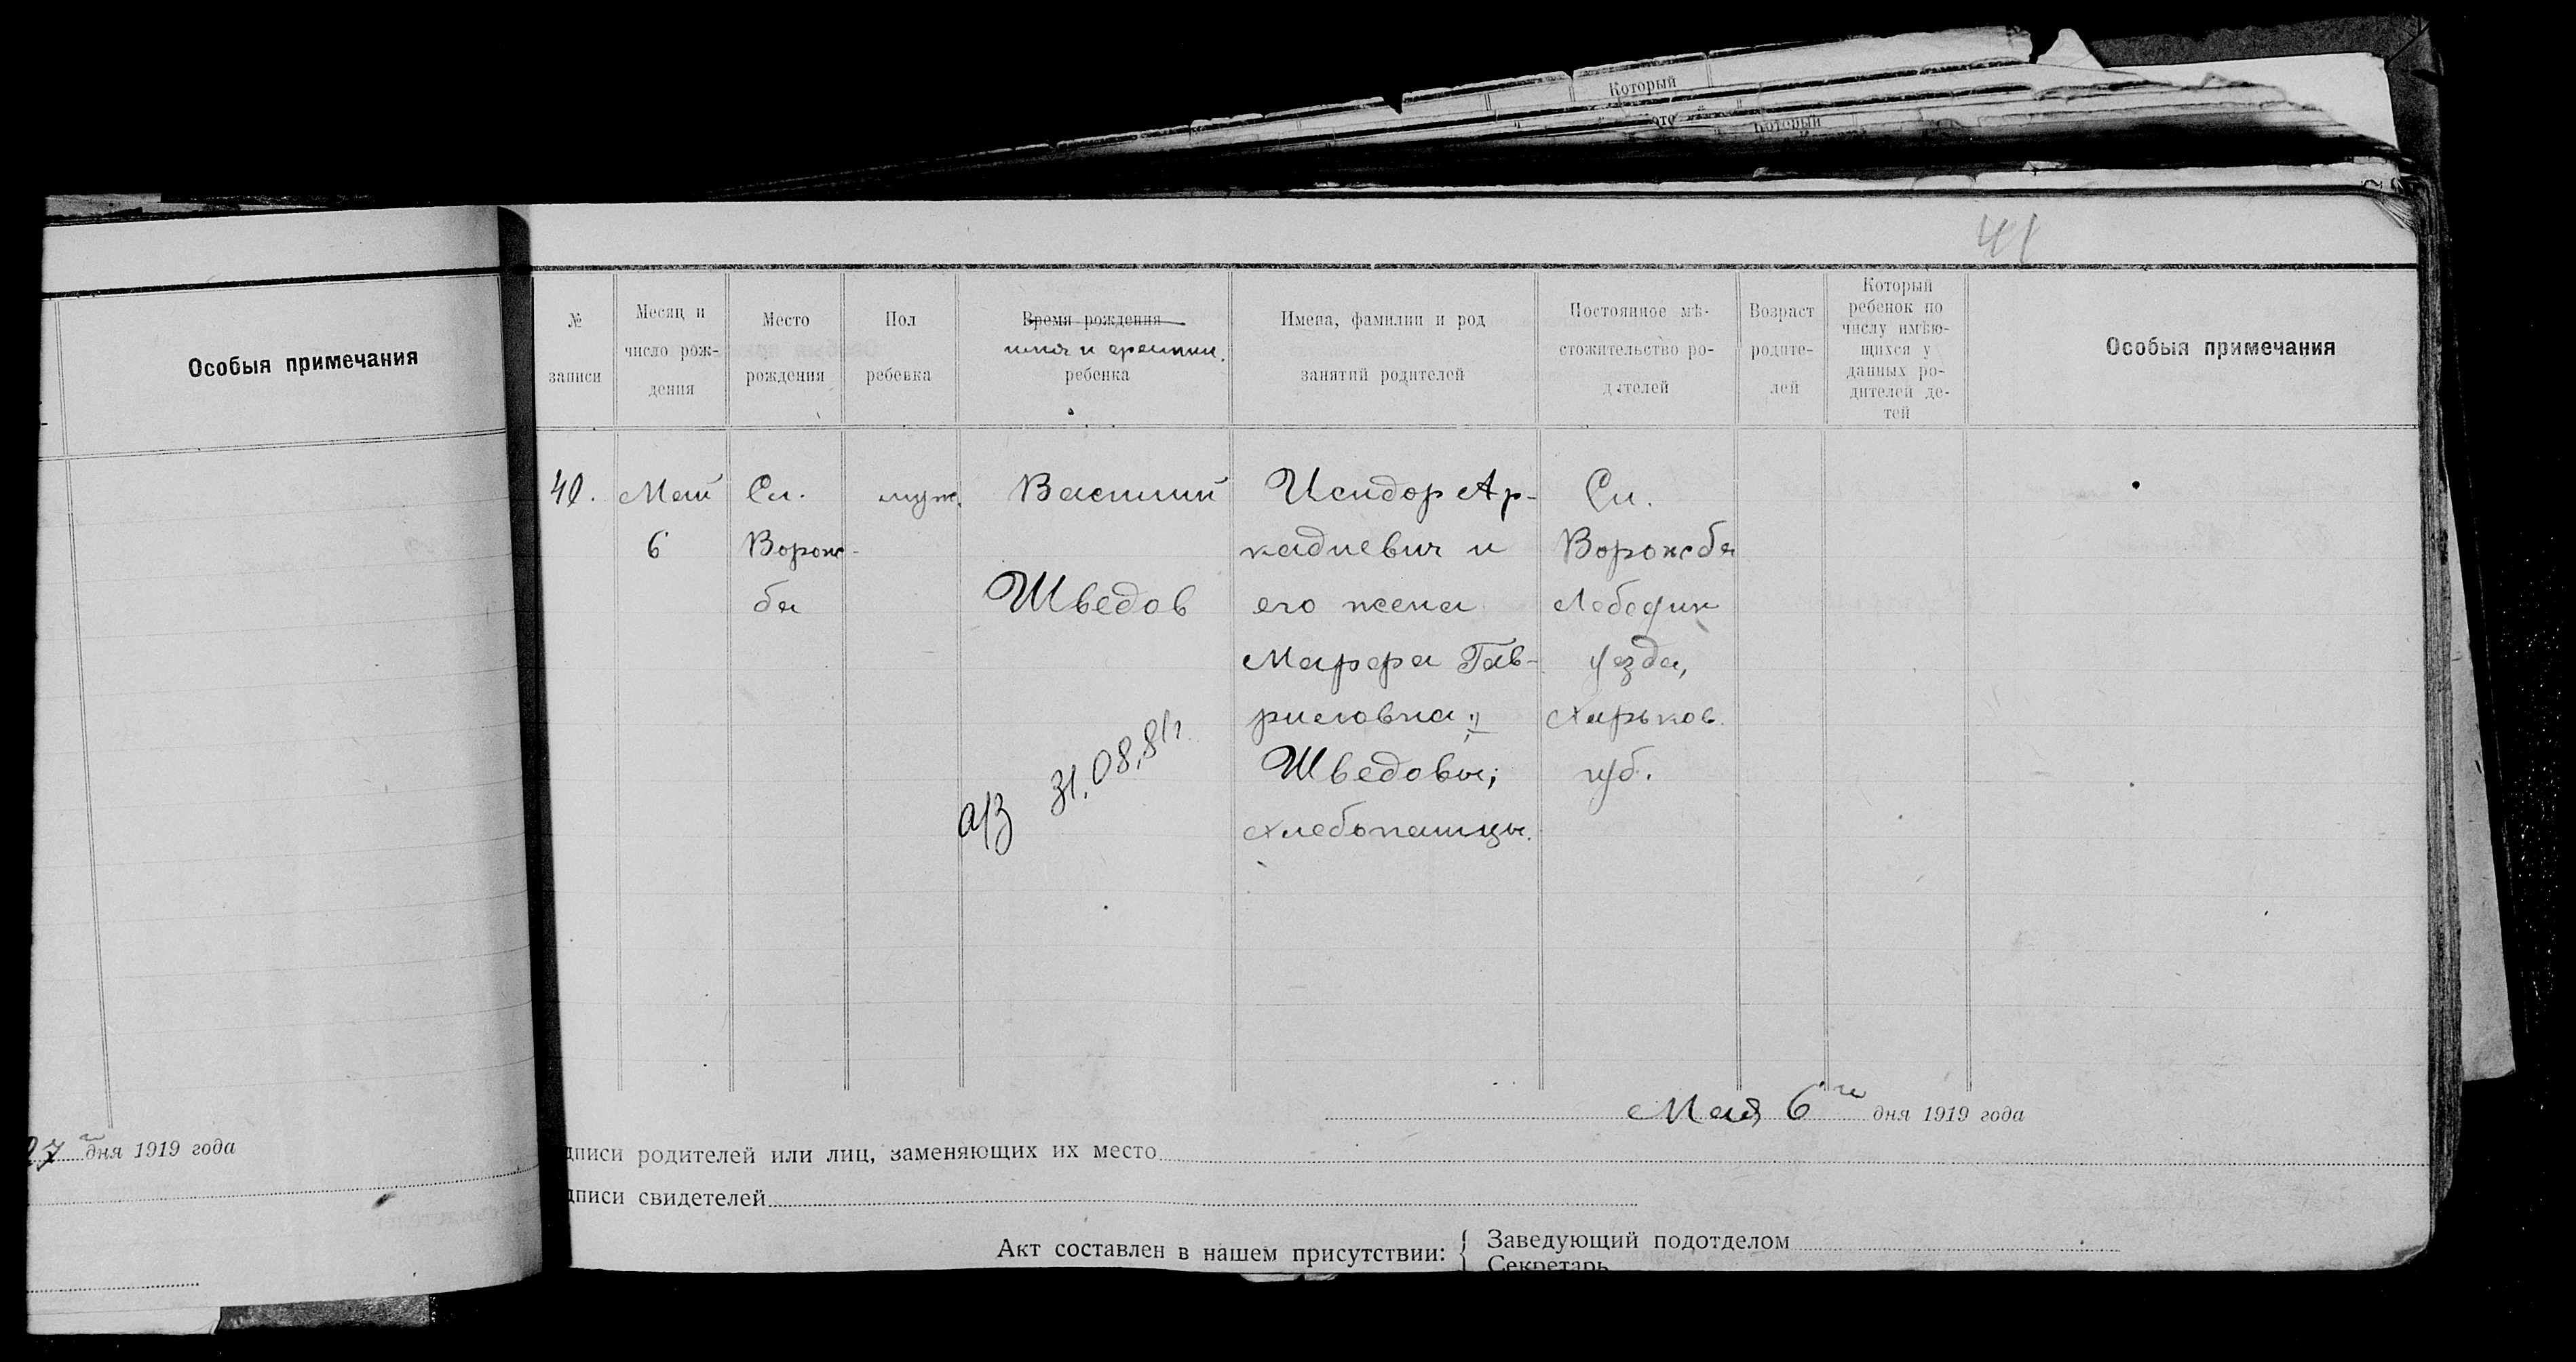 Который
Который
41
Особыя примечания
27 дня 1919 года
№
записи
Месяц и
число рож-
дения
Место
рождения
Пол
ребенка
Время рождения
имя и фамилия
ребенка
Имена, фамилии и род
занятий родителей
Постоянное мѣ-
стожительство ро-
дителей
Возраст
родите-
лей
Который
ребенок по
числу имѣю-
щихся у
данных ро-
дителей де-
тей
Особыя примечания
40.
Май
6
Сл.
Ворож-
ба
муж.
Василий
Шведов
Исидор Ар-
кадиевич и
его жена
Марфа Гав-
риловна
Шведовы;
хлебопашцы.
Сл.
Ворожба
Лебедин
уезда,
Харьков.
губ.
а/з 31.08.81г
Мая 6го дня 1919 года
дписи родителей или лиц, заменяющих их место
дписи свидетелей
Акт составлен в нашем присутствии:
Заведующий подотделом
Секретарь